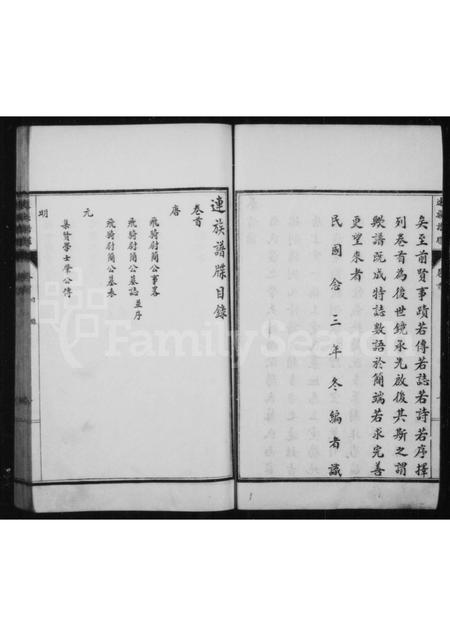 矣至前賢事蹟若傳若誌若詩若序擇
列卷首為後世鏡承先啟後其斯之謂
歟譜既成特誌數語於簡端若求完善
更望來者
民國念三年冬編者識
連族譜牒目錄
卷首
唐
飛騎尉簡公事畧
飛騎尉簡公墓誌並序
飛騎尉簡公墓表
元
集賢學士肇公傳
明
目錄
FamilySearch